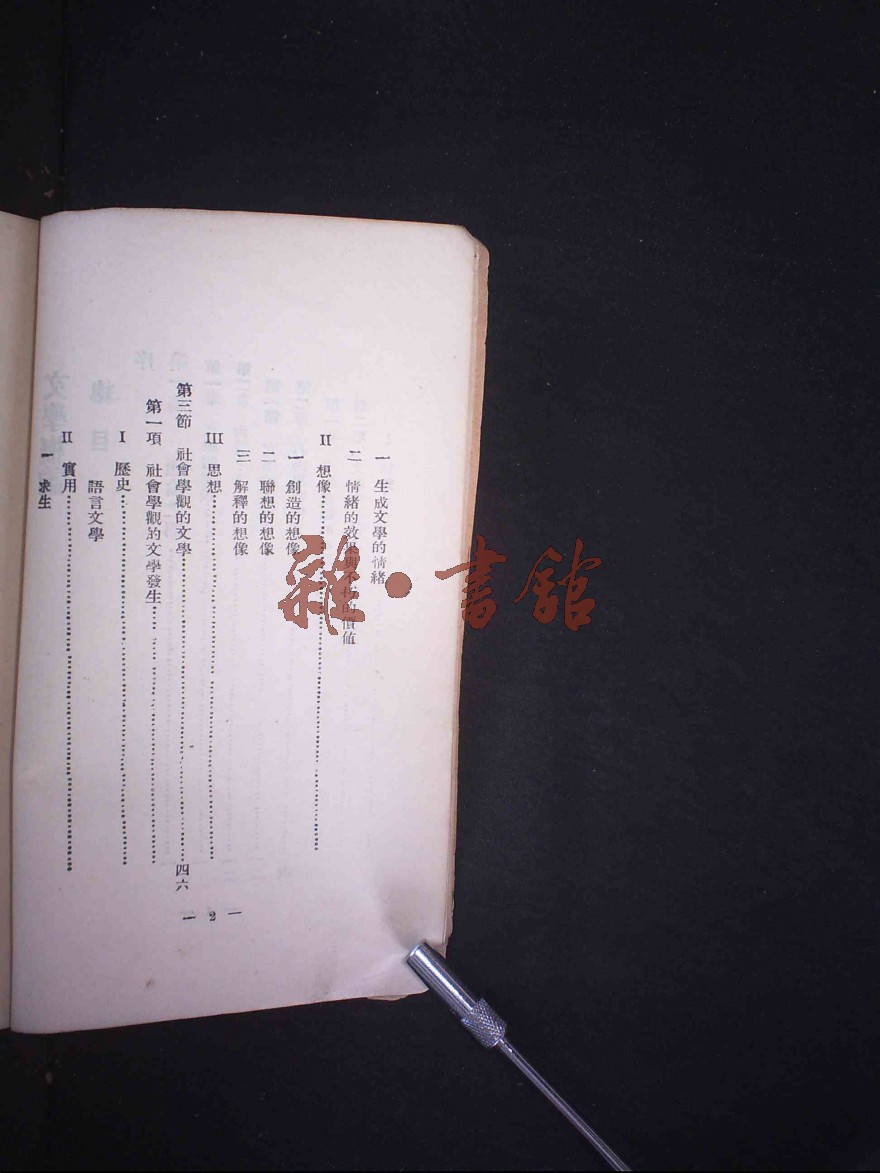 一 生成文學的情緒
二 情緒的效果與不朽的價值
II 想像
一 創造的想像
二 聯想的想像
三 解釋的想像
III 思想
第三節 社會學觀的文學 四六
第一項 社會學觀的文學發生
I 歷史
語言文學
II 實用
一 求生
— 2 —
雜·書館